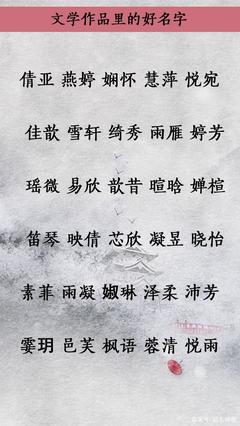 文学作品里的好名字
倩亚 燕婷 娴怀 慧萍 悦宛
佳歆 雪轩 绮秀 雨雁 婷芳
瑶微 易欣 歆昔 暄晗 婵楦
笛琴 映倩 芯欣 凝昱 晓怡
素菲 雨凝 婌琳 泽柔 沛芳
霎玥 邑芙 枫语 蓉清 悦雨